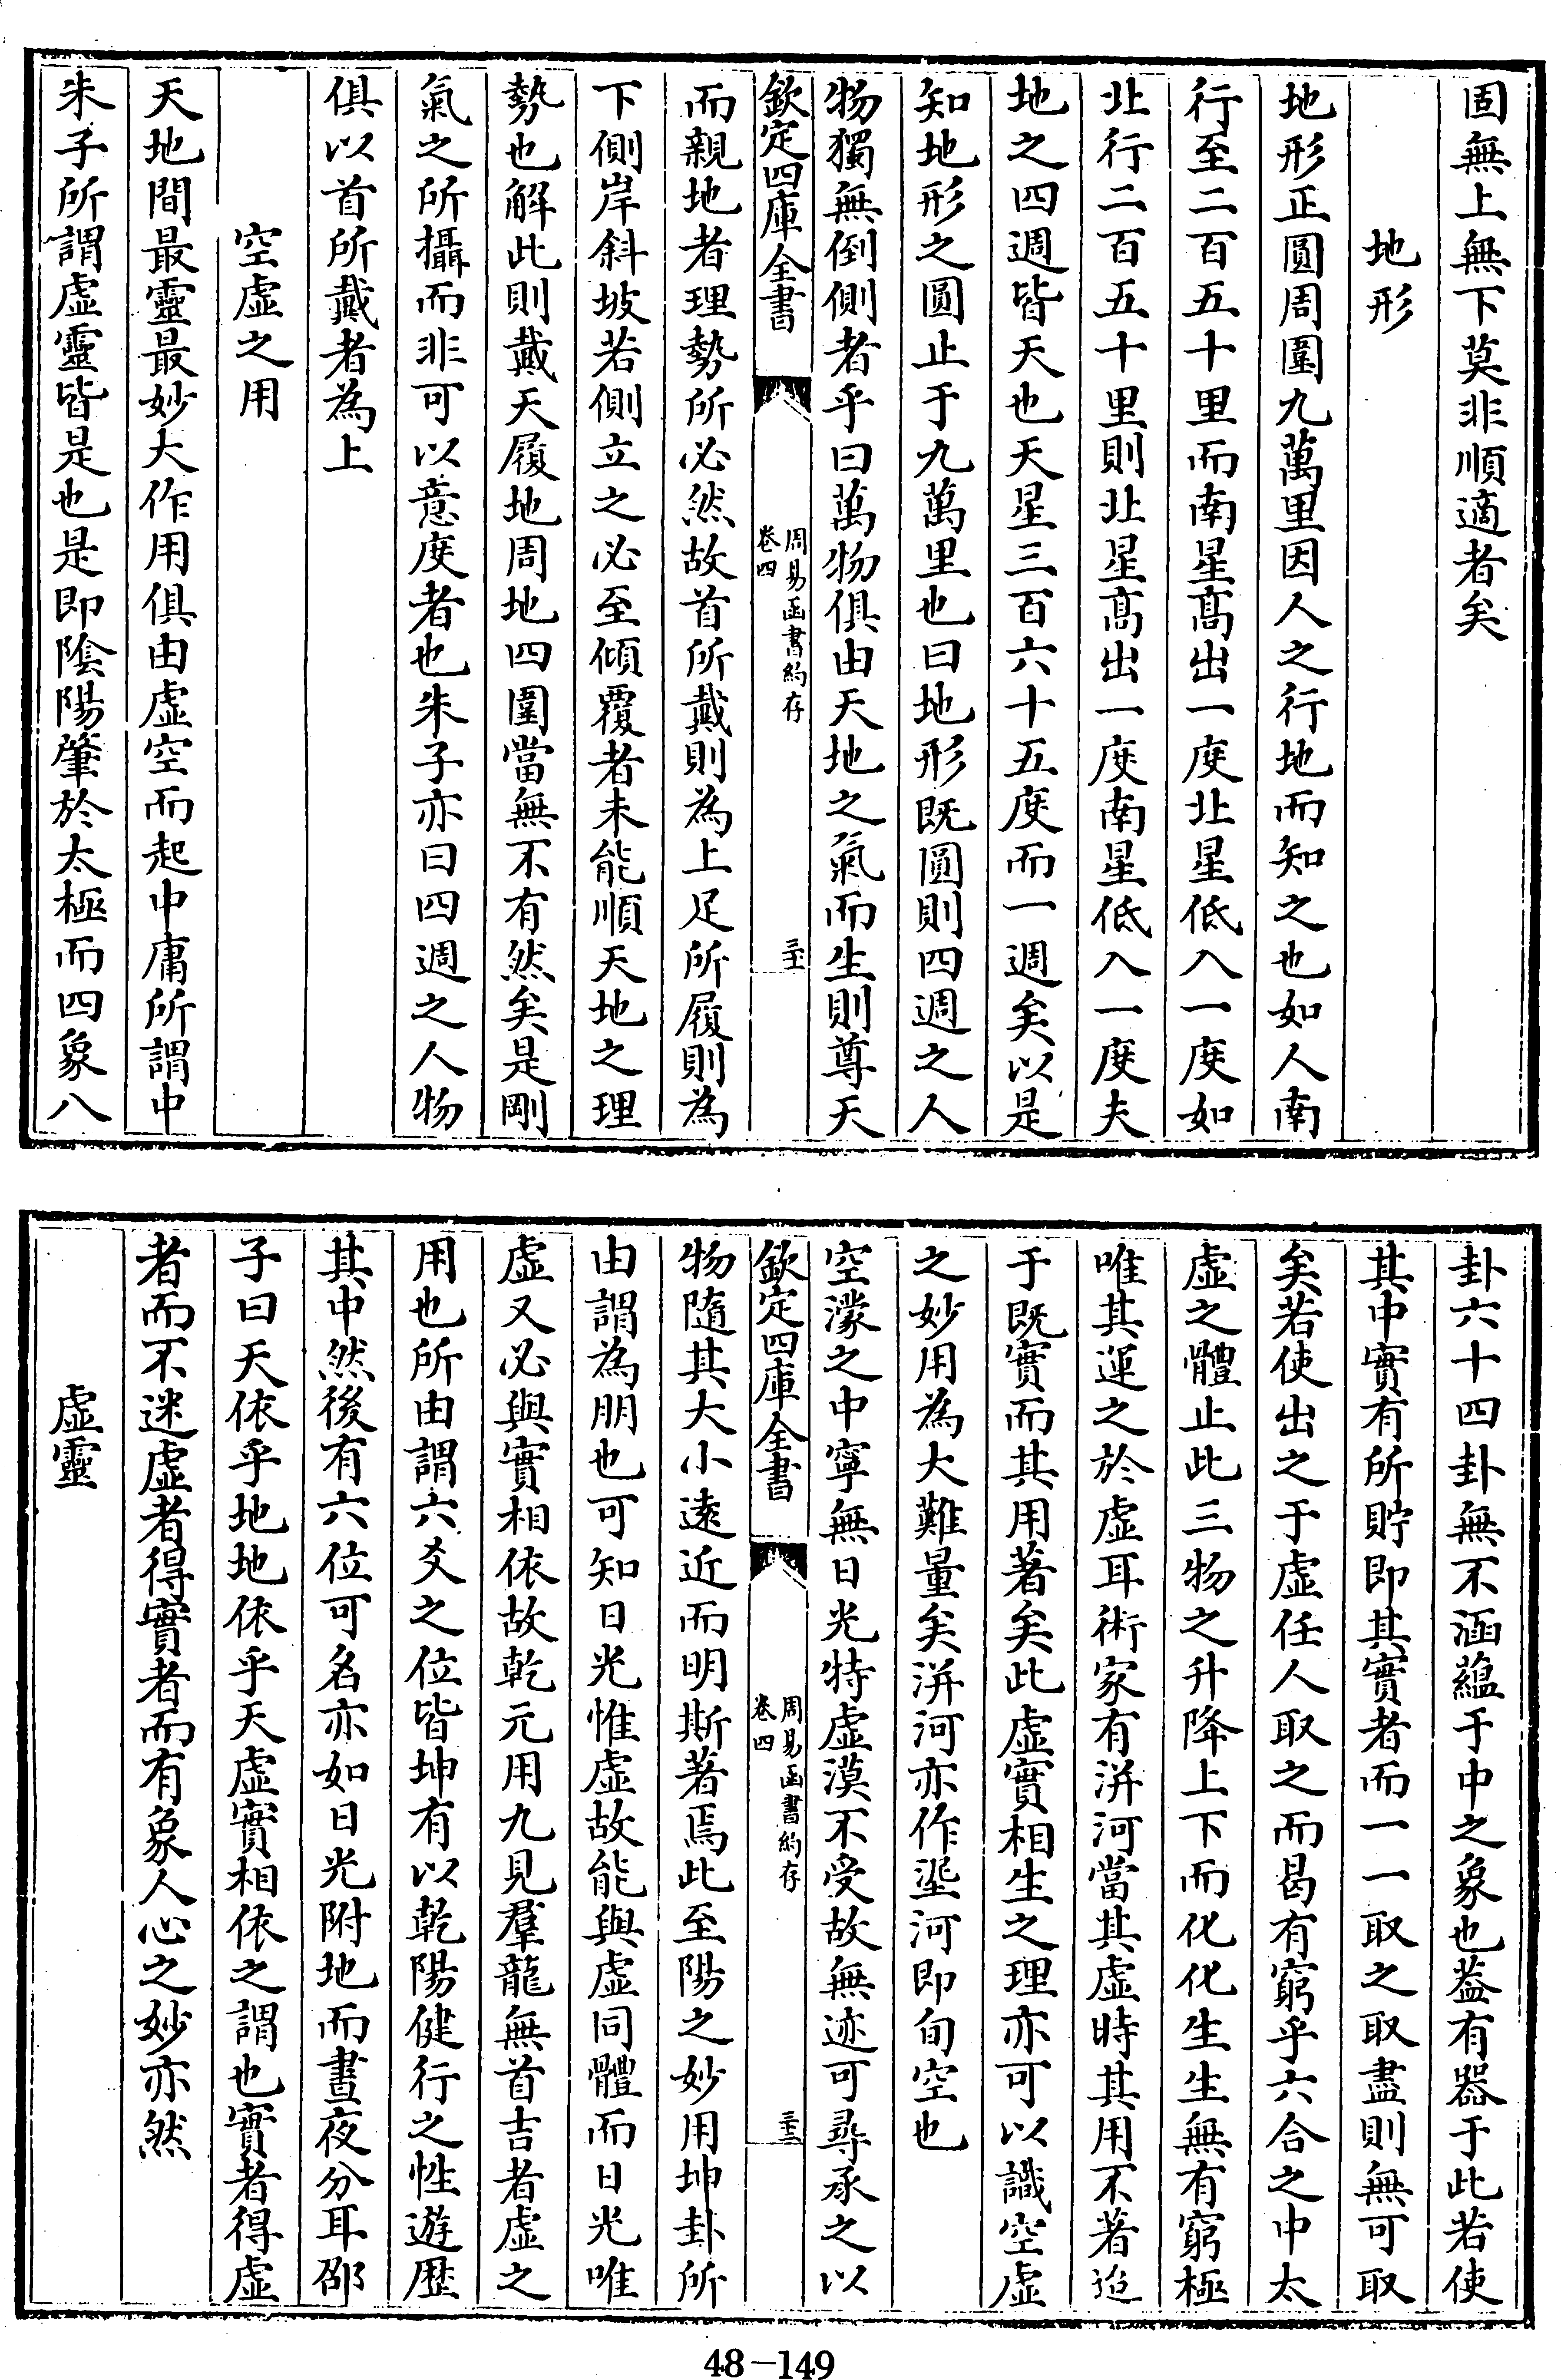 固無上無下莫非順適者矣
地形
地形正圓周圍九萬里因人之行地而知之也如人南
行至二百五十里而南星髙出一度北星低入一度如
北行二百五十里則北星髙出一度南星低入一度夫
地之四週皆天也天星三百六十五度而一週矣以是
知地形之圓止于九萬里也曰地形既圓則四週之人
物獨無倒側者乎曰萬物俱由天地之氣而生則尊天
欽定四庫全書
周易函書約存
卷四
三十一
而親地者理勢所必然故首所戴則為上足所履則為
下側岸斜坡若側立之必至傾覆者未能順天地之理
勢也解此則戴天履地周地四圍當無不有然矣是剛
氣之所攝而非可以意度者也朱子亦曰四週之人物
俱以首所戴者為上
空虛之用
天地間最靈最妙大作用俱由虛空而起中庸所謂中
朱子所謂虛靈皆是也是即陰陽肇於太極而四象八
卦六十四卦無不涵蘊于中之象也葢有器于此若使
其中實有所貯即其實者而一一取之取盡則無可取
矣若使出之于虛任人取之而曷有窮乎六合之中太
虛之體止此三物之升降上下而化化生生無有窮極
唯其運之於虛耳術家有洴河當其虛時其用不著迨
于既實而其用著矣此虛實相生之理亦可以識空虛
之妙用為大難量矣洴河亦作垩河即旬空也
空濛之中寧無日光特虛漠不受故無迹可尋承之以
欽定四庫全書
周易函書約存
卷四
三十二
物隨其大小遠近而明斯著焉此至陽之妙用坤卦所
由謂為朋也可知日光惟虛故能與虛同體而日光唯
虛又必與實相依故乾元用九見羣龍無首吉者虛之
用也所由謂六爻之位皆坤有以乾陽健行之性遊歷
其中然後有六位可名亦如日光附地而晝夜分耳邵
子曰天依乎地地依乎天虛實相依之謂也實者得虛
者而不迷虛者得實者而有象人心之妙亦然
虛靈
48-149